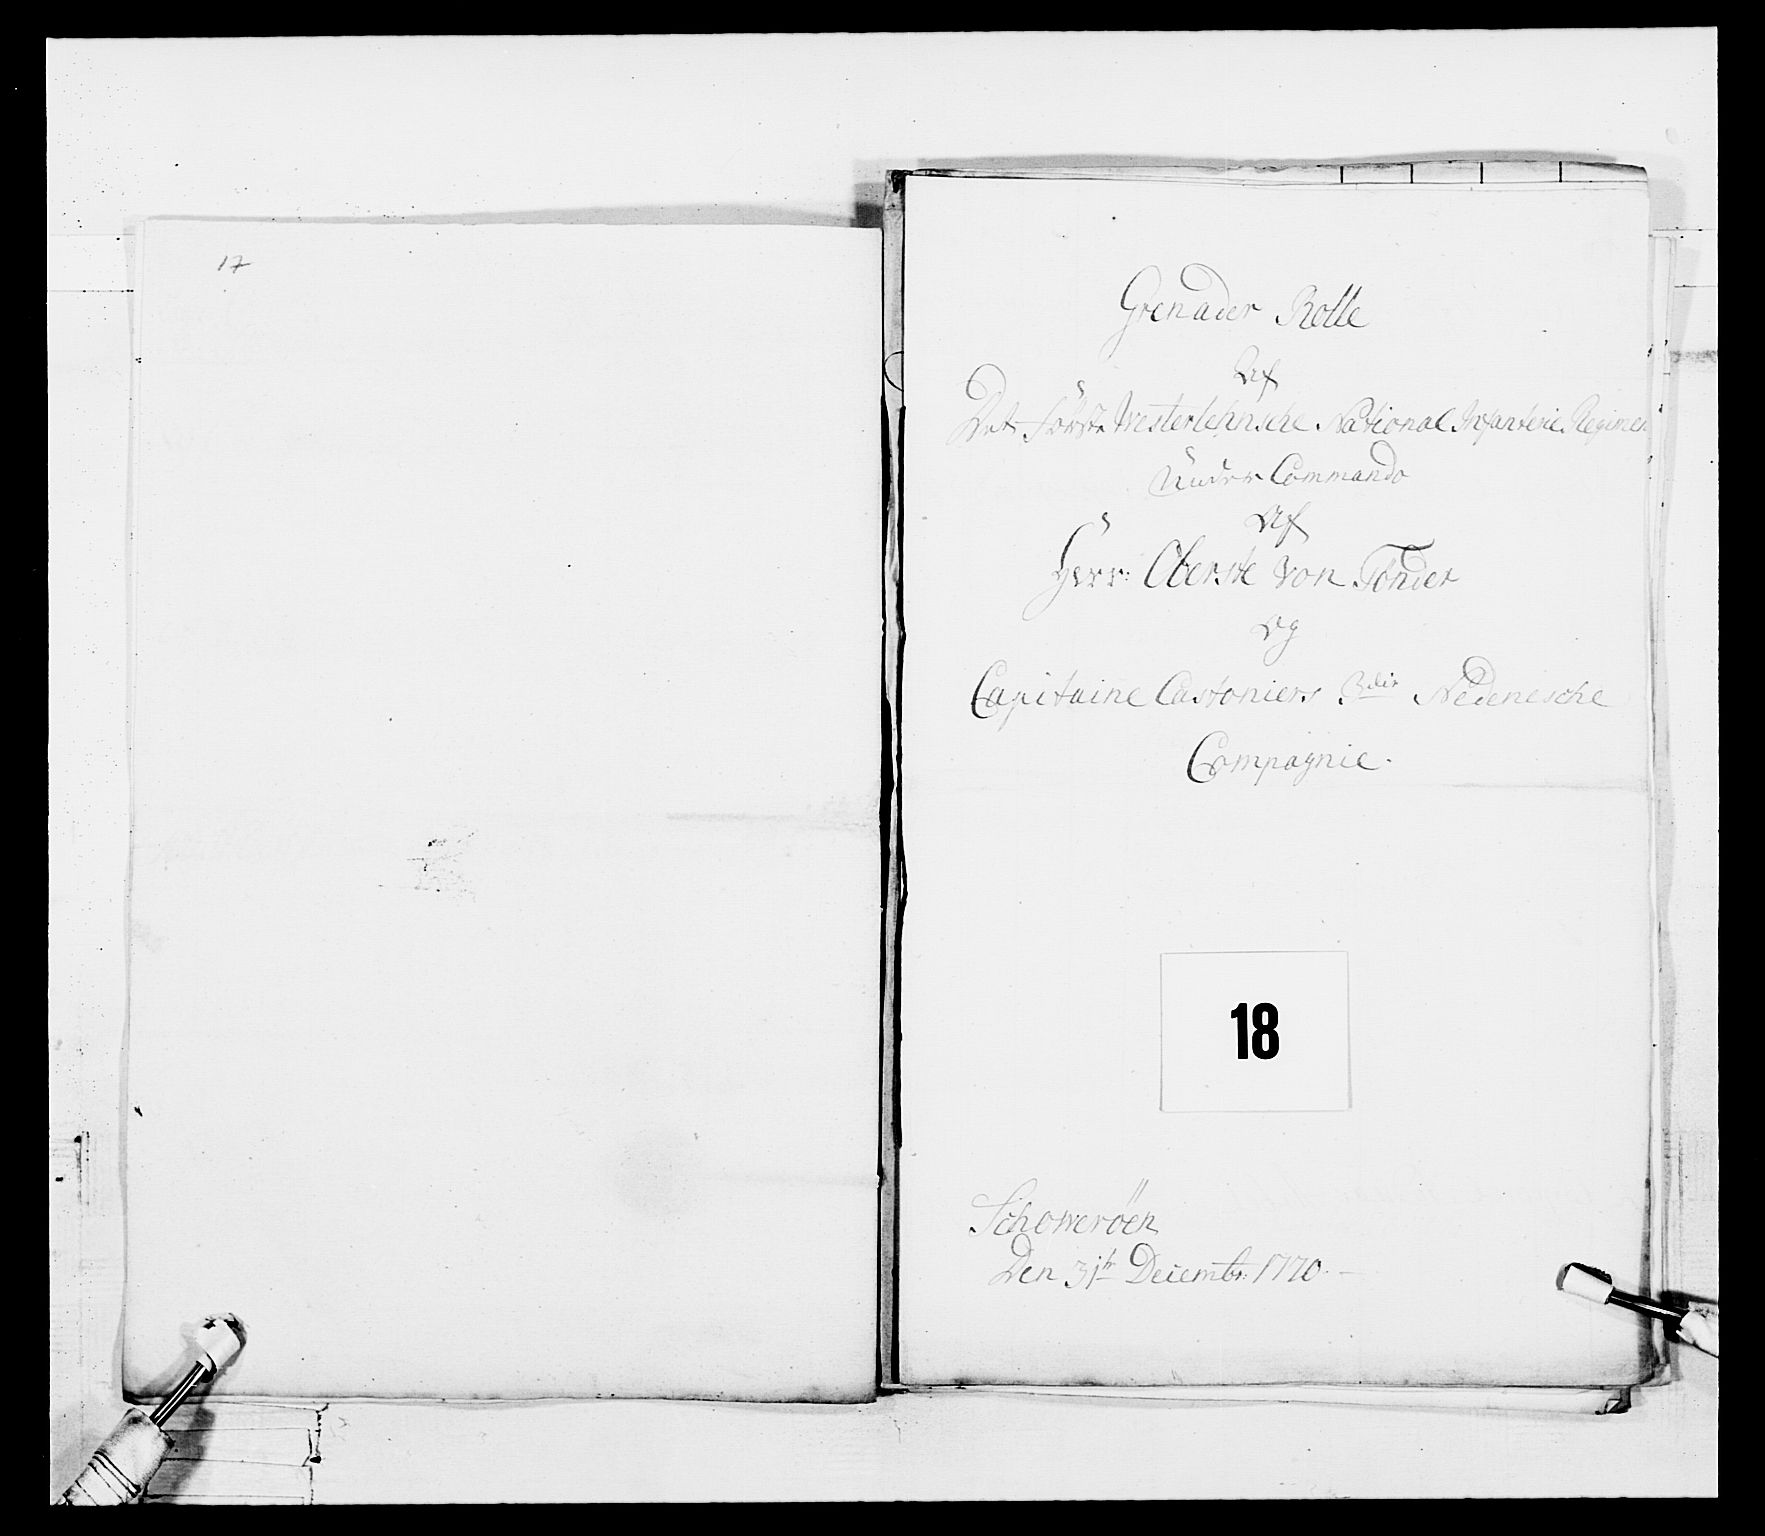 17
Grenader Rolle
Af
Det Förste Westerlehnsche National Infanterie Regimen
Under Commando
Af
Herr: Oberste von Tönder
Og
Capitaine Castoniers 3die Nedenesche
Compagnie.
18
Schoweröen
Den 31te Decembr: 1770.